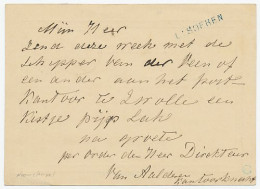 LEMMEHEN
Mijn Heer
Zend deze week met de
Schipper van der Veen of
een ander aan het post
kantoor te Zwolle een
kistje pijp lak
na groete
per order den Heer Direkteur
Van Aalderen
Kantoorknecht